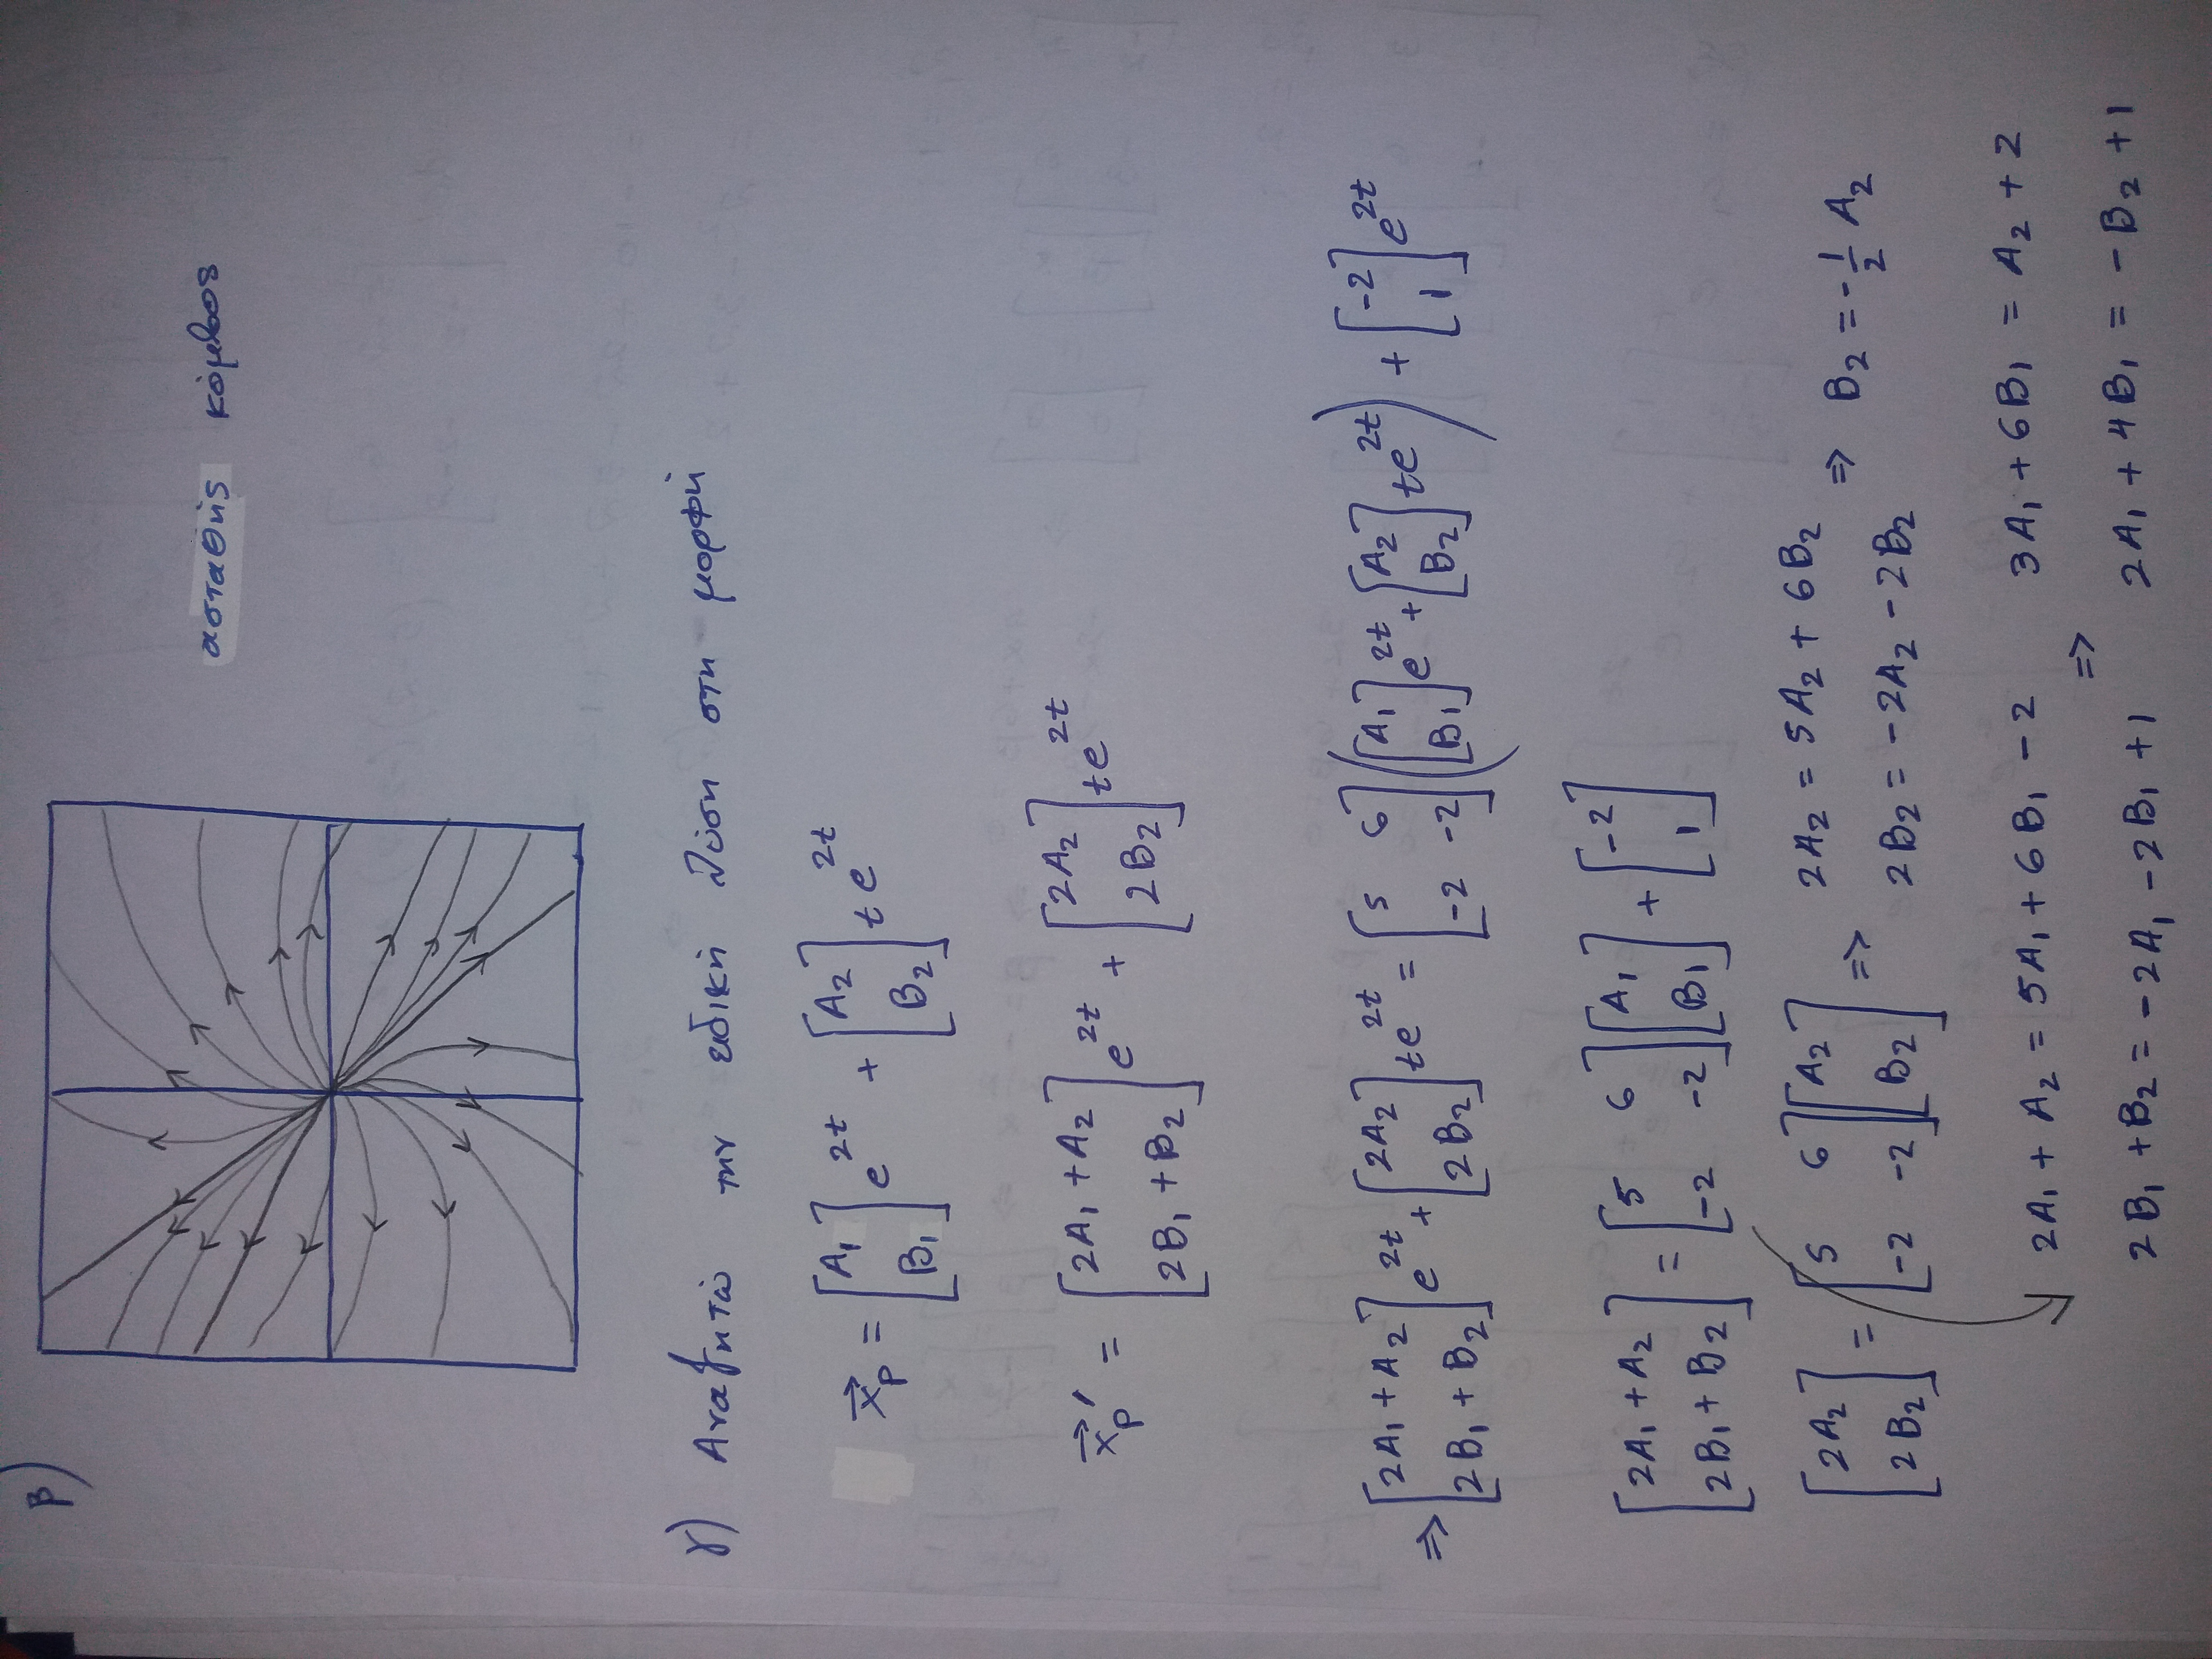 β)
ασταθής κόμβος
γ) Αναζητώ την ειδική λύση στη μορφή
x⃗p = [A1; B1] e^{2t} + [A2; B2] t e^{2t}
x⃗p' = [2A1 + A2; 2B1 + B2] e^{2t} + [2A2; 2B2] t e^{2t}
=> [2A1 + A2; 2B1 + B2] e^{2t} + [2A2; 2B2] t e^{2t} = [5 6; -2 -2] ([A1; B1] e^{2t} + [A2; B2] t e^{2t}) + [-2; 1] e^{2t}
[2A1 + A2; 2B1 + B2] = [5 6; -2 -2] [A1; B1] + [-2; 1]
[2A2; 2B2] = [5 6; -2 -2] [A2; B2] => 2A2 = 5A2 + 6B2
2B2 = -2A2 - 2B2 => B2 = -1/2 A2
2A1 + A2 = 5A1 + 6B1 - 2 3A1 + 6B1 = A2 + 2
=>
2B1 + B2 = -2A1 - 2B1 + 1 2A1 + 4B1 = -B2 + 1